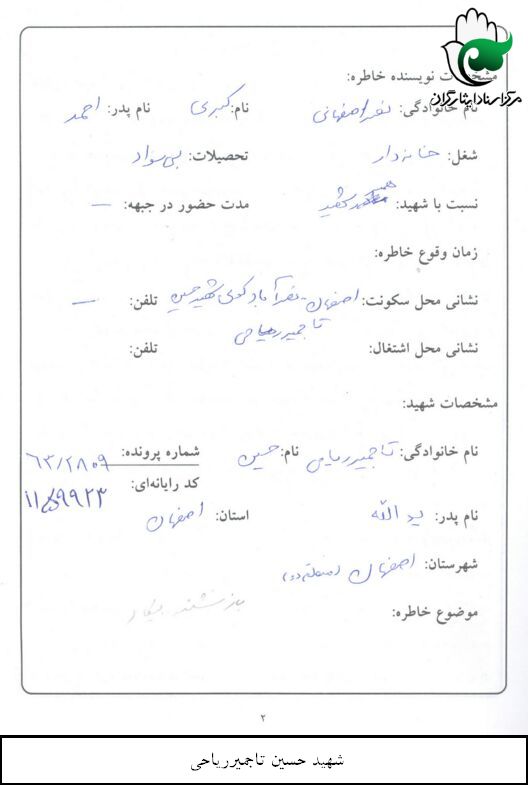 مرکز اسناد ایثارگران
مشخصات نویسنده خاطره:
نام خانوادگی: نصر اصفهانی نام: کبری نام پدر: احمد
شغل: خانه دار تحصیلات: بی سواد
نسبت با شهید: همسر شهید مدت حضور در جبهه: —
زمان وقوع خاطره:
نشانی محل سکونت: اصفهان - نصرآباد کوی شهید حسین تلفن: —
تاجمیرریاحی
نشانی محل اشتغال: تلفن:
مشخصات شهید:
نام خانوادگی: تاجمیرریاحی نام: حسین شماره پرونده: ۶۳/۲۸۰۹
کد رایانه‌ای:
نام پدر: یدالله استان: اصفهان
شهرستان: اصفهان (منطقه دو)
موضوع خاطره:
۲
شهید حسین تاجمیرریاحی